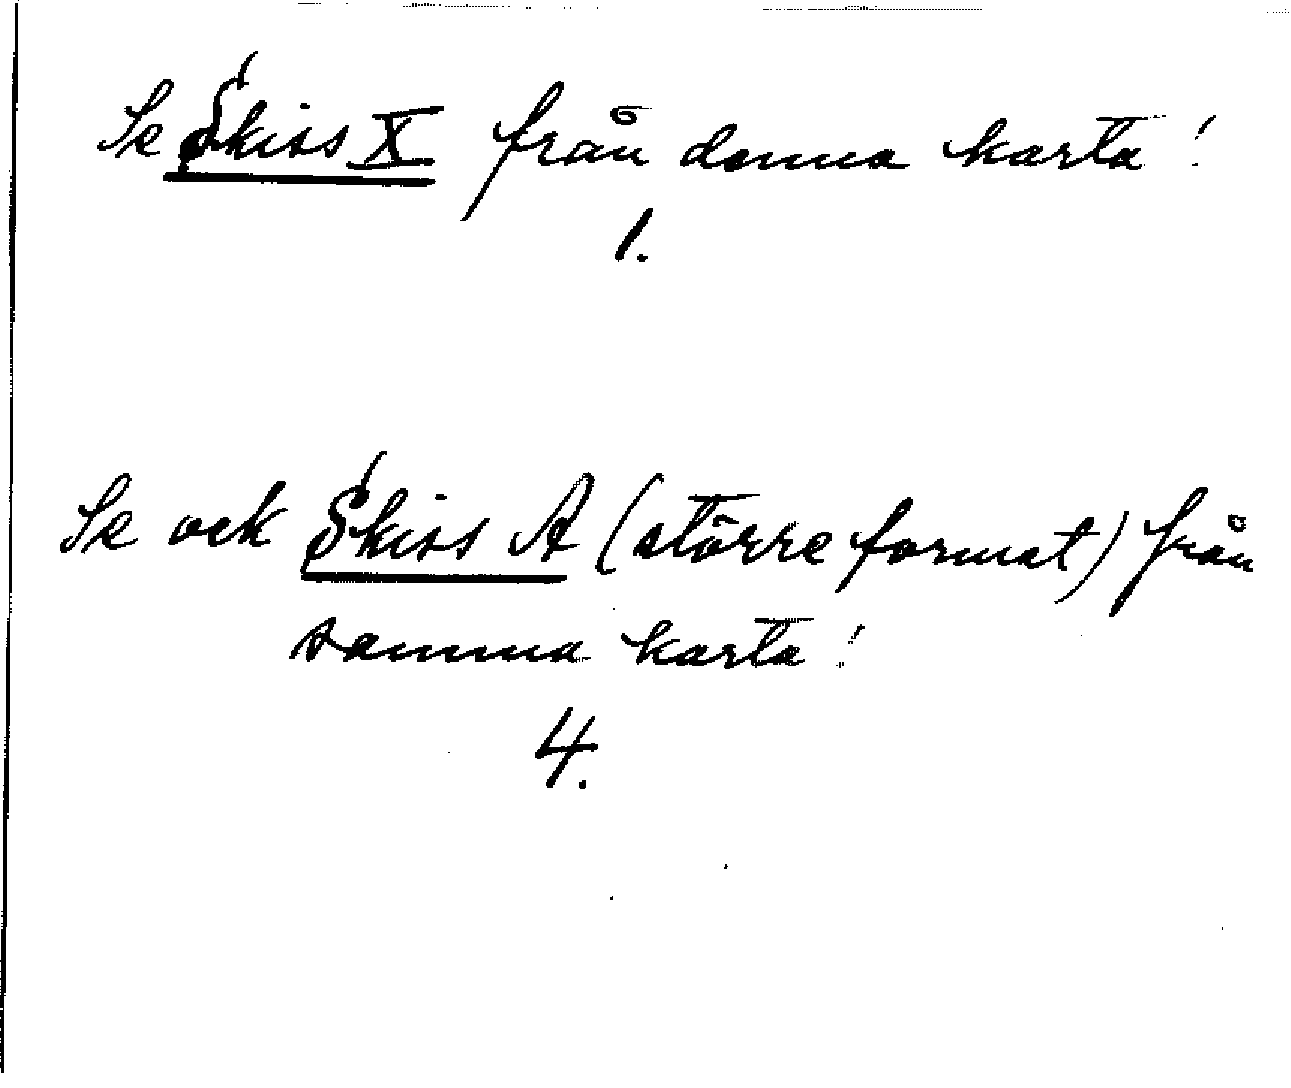 Se Skiss X från denna karta!
1.
Se ock Skiss A (större format) från
samma karta!
4.